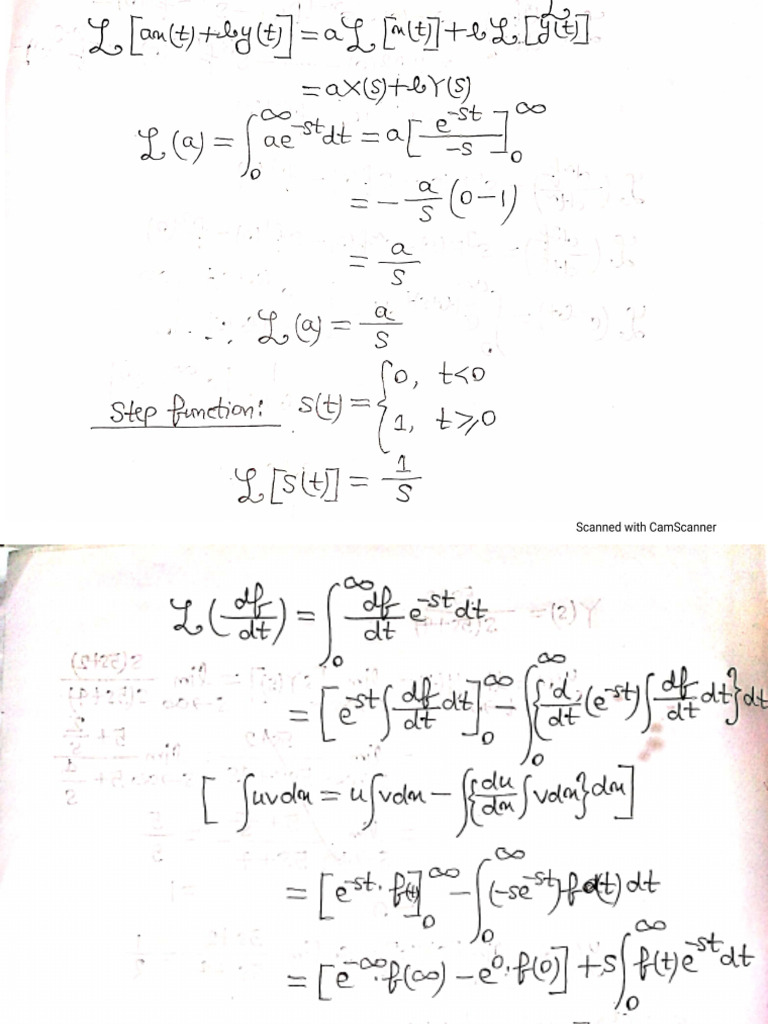 ℒ[ax(t)+by(t)] = aℒ[x(t)]+bℒ[y(t)]
= aX(s)+bY(s)
ℒ(a) = ∫₀^∞ ae^{-st}dt = a[e^{-st}/-s]₀^∞
= -a/s (0-1)
= a/s
∴ ℒ(a) = a/s
Step function: s(t) = {0, t<0
1, t⩾0
ℒ[s(t)] = 1/s
Scanned with CamScanner
ℒ(df/dt) = ∫₀^∞ df/dt e^{-st}dt
= [e^{-st}∫df/dt dt]₀^∞ - ∫₀^∞{d/dt(e^{-st})∫df/dt dt}dt
[∫uvdx = u∫vdx - ∫{du/dx∫vdx}dx]
= [e^{-st}.f(t)]₀^∞ - ∫₀^∞(-se^{-st})f(t)dt
= [e^{-∞}.f(∞) - e^0.f(0)] + s∫₀^∞ f(t)e^{-st}dt